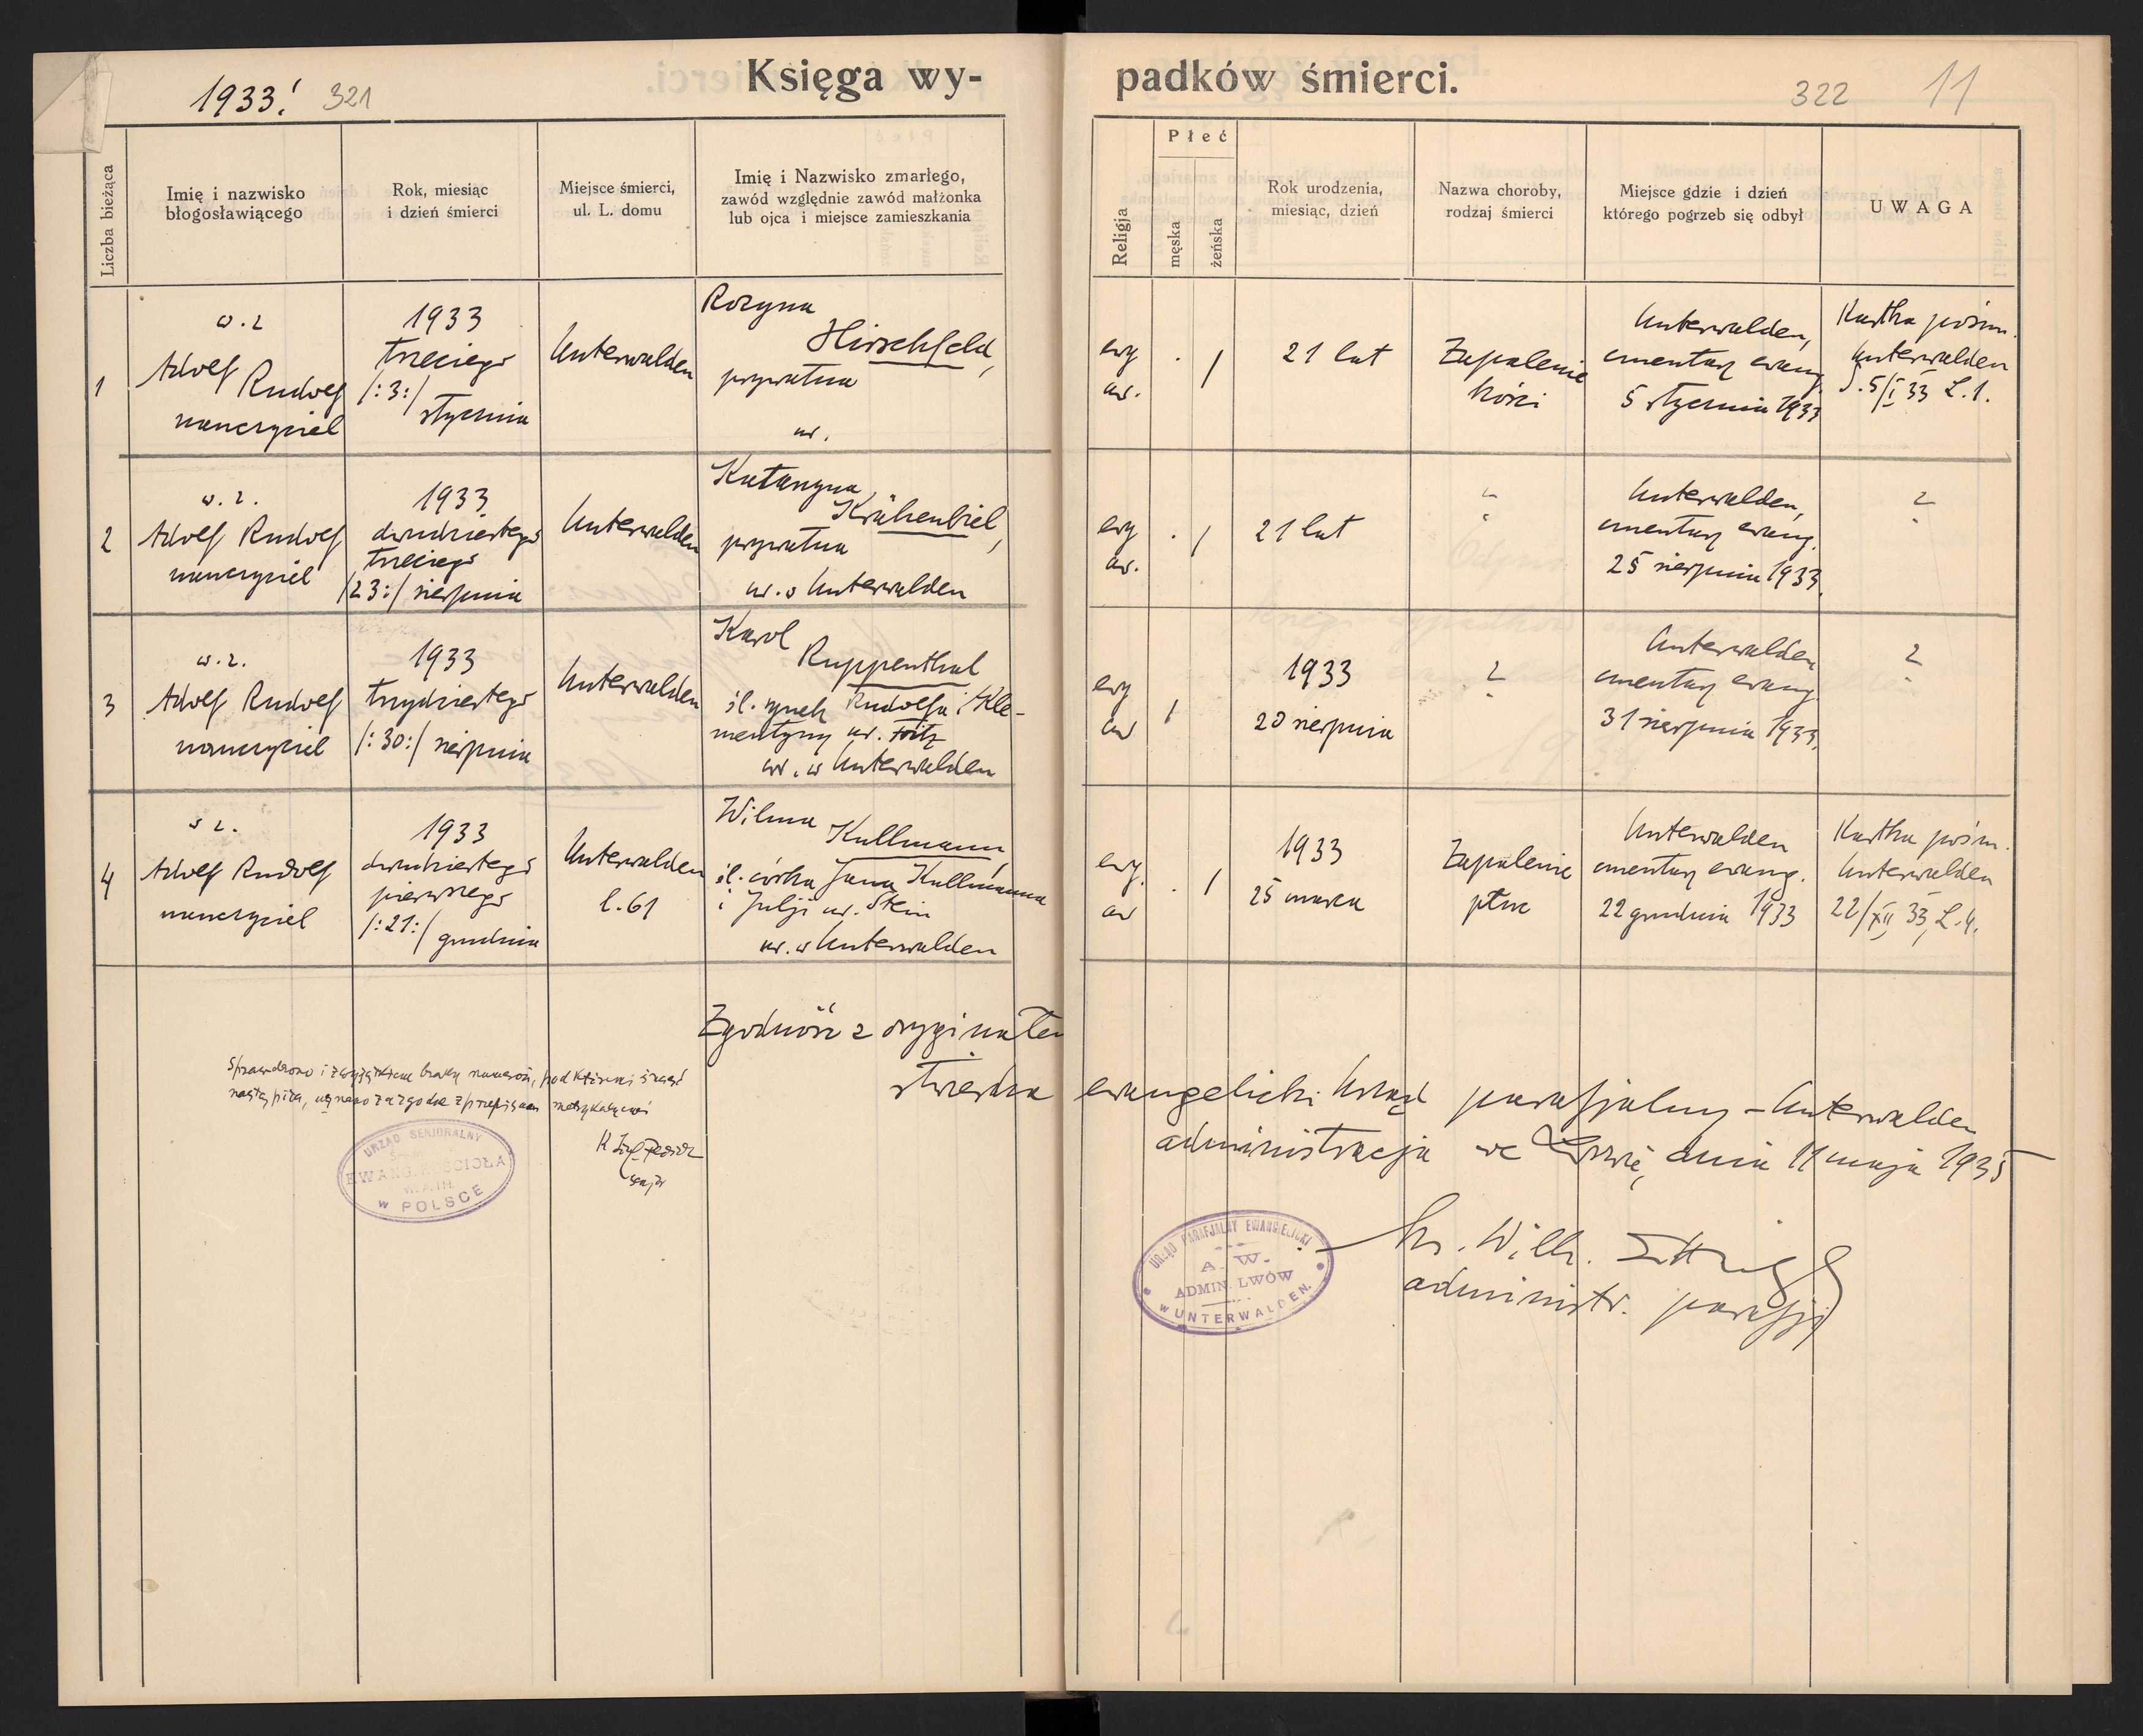 1933! 321
Księga wy-
padków śmierci.
322 11
Liczba bieżąca
Imię i nazwisko
błogosławiącego
Rok, miesiąc
i dzień śmierci
Miejsce śmierci,
ul. L. domu
Imię i Nazwisko zmarłego,
zawód względnie zawód małżonka
lub ojca i miejsce zamieszkania
Religja
Płeć
męska
żeńska
Rok urodzenia,
miesiąc, dzień
Nazwa choroby,
rodzaj śmierci
Miejsce gdzie i dzień
którego pogrzeb się odbył
UWAGA
1
w. z
Adolf
Rudolf
nauczyciel
1933
trzeciego
/:3:/
stycznia
Unterwalden
Rozyna
Hirschfeld,
prywatna
ur.
ewg
aw.
. /
21 lat
Zapalenie
kości
Unterwalden,
cmentarz ewang.
5 stycznia 1933
Kartka pośm.
Unterwalden
5/I 33 L.1.
2
w. z.
Adolf Rudolf
nauczyciel
1933
dwudziestego
trzeciego
/23:/ sierpnia
Unterwalden
Katarzyna
Krähenbiel,
prywatna
ur. w Unterwalden
ewg
aw.
. /
21 lat
Unterwalden,
cmentarz ewang.
25 sierpnia 1933.
?
3
w. z.
Adolf Rudolf
nauczyciel
1933
trzydziestego
/:30:/ sierpnia
Unterwalden
Karol
Ruppenthal
śl. synek Rudolfa i Kle-
mentyny ur. Fritz
ur. w Unterwalden
ewg
aw
/
1933
20 sierpnia
?
Unterwalden
cmentarz ewang
31 sierpnia 1933.
?
4
Adolf Rudolf
nauczyciel
1933
dwudziestego
pierwszego
/:21:/ grudnia
Unterwalden
l. 61
Wilma
Kullmann,
śl. córka Jana Kullmanna
i Julji ur. Stein
ur. w Unterwalden
ewg.
aw
. /
1933
25 marca
Zapalenie
płuc
Unterwalden
cmentarz ewang.
22 grudnia 1933
Kartka pośm.
Unterwalden
22/XII 33, L.4.
Zgodność z oryginałem
stwierdza ewangelicki Urząd parafjalny - Unterwalden
administracja we Lwowie, dnia 11 maja 1935
Sprawdzono i z wyjątkiem braku numerów, pod którymi śmierć
nastąpiła, uznano za zgodne z przepisami metrykalnymi
URZĄD SENJORALNY
EWANG. KOŚCIOŁA
W POLSCE
URZĄD PARAFJALNY EWANGIELICKI
A. W.
ADMIN. LWÓW
W UNTERWALDEN.
ks. Wilh. Ettinger
administr. parafji